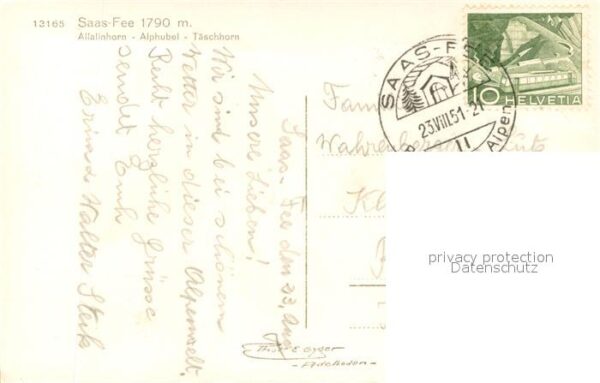 13165 Saas-Fee 1790 m.
Allalinhorn - Alphubel - Täschhorn
Saas-Fee den 23. Aug
Unsere Lieben!
Wir sind bei schönem
Wetter in dieser Alpenwelt.
Recht herzliche Grüsse
sendet Euch
Erina & Walter
SAAS-FEE
23.VIII.51-2
Alpen
10 HELVETIA
Fam
Wahrenberger
privacy protection
Datenschutz
Photo E. Gyger
-Adelboden-